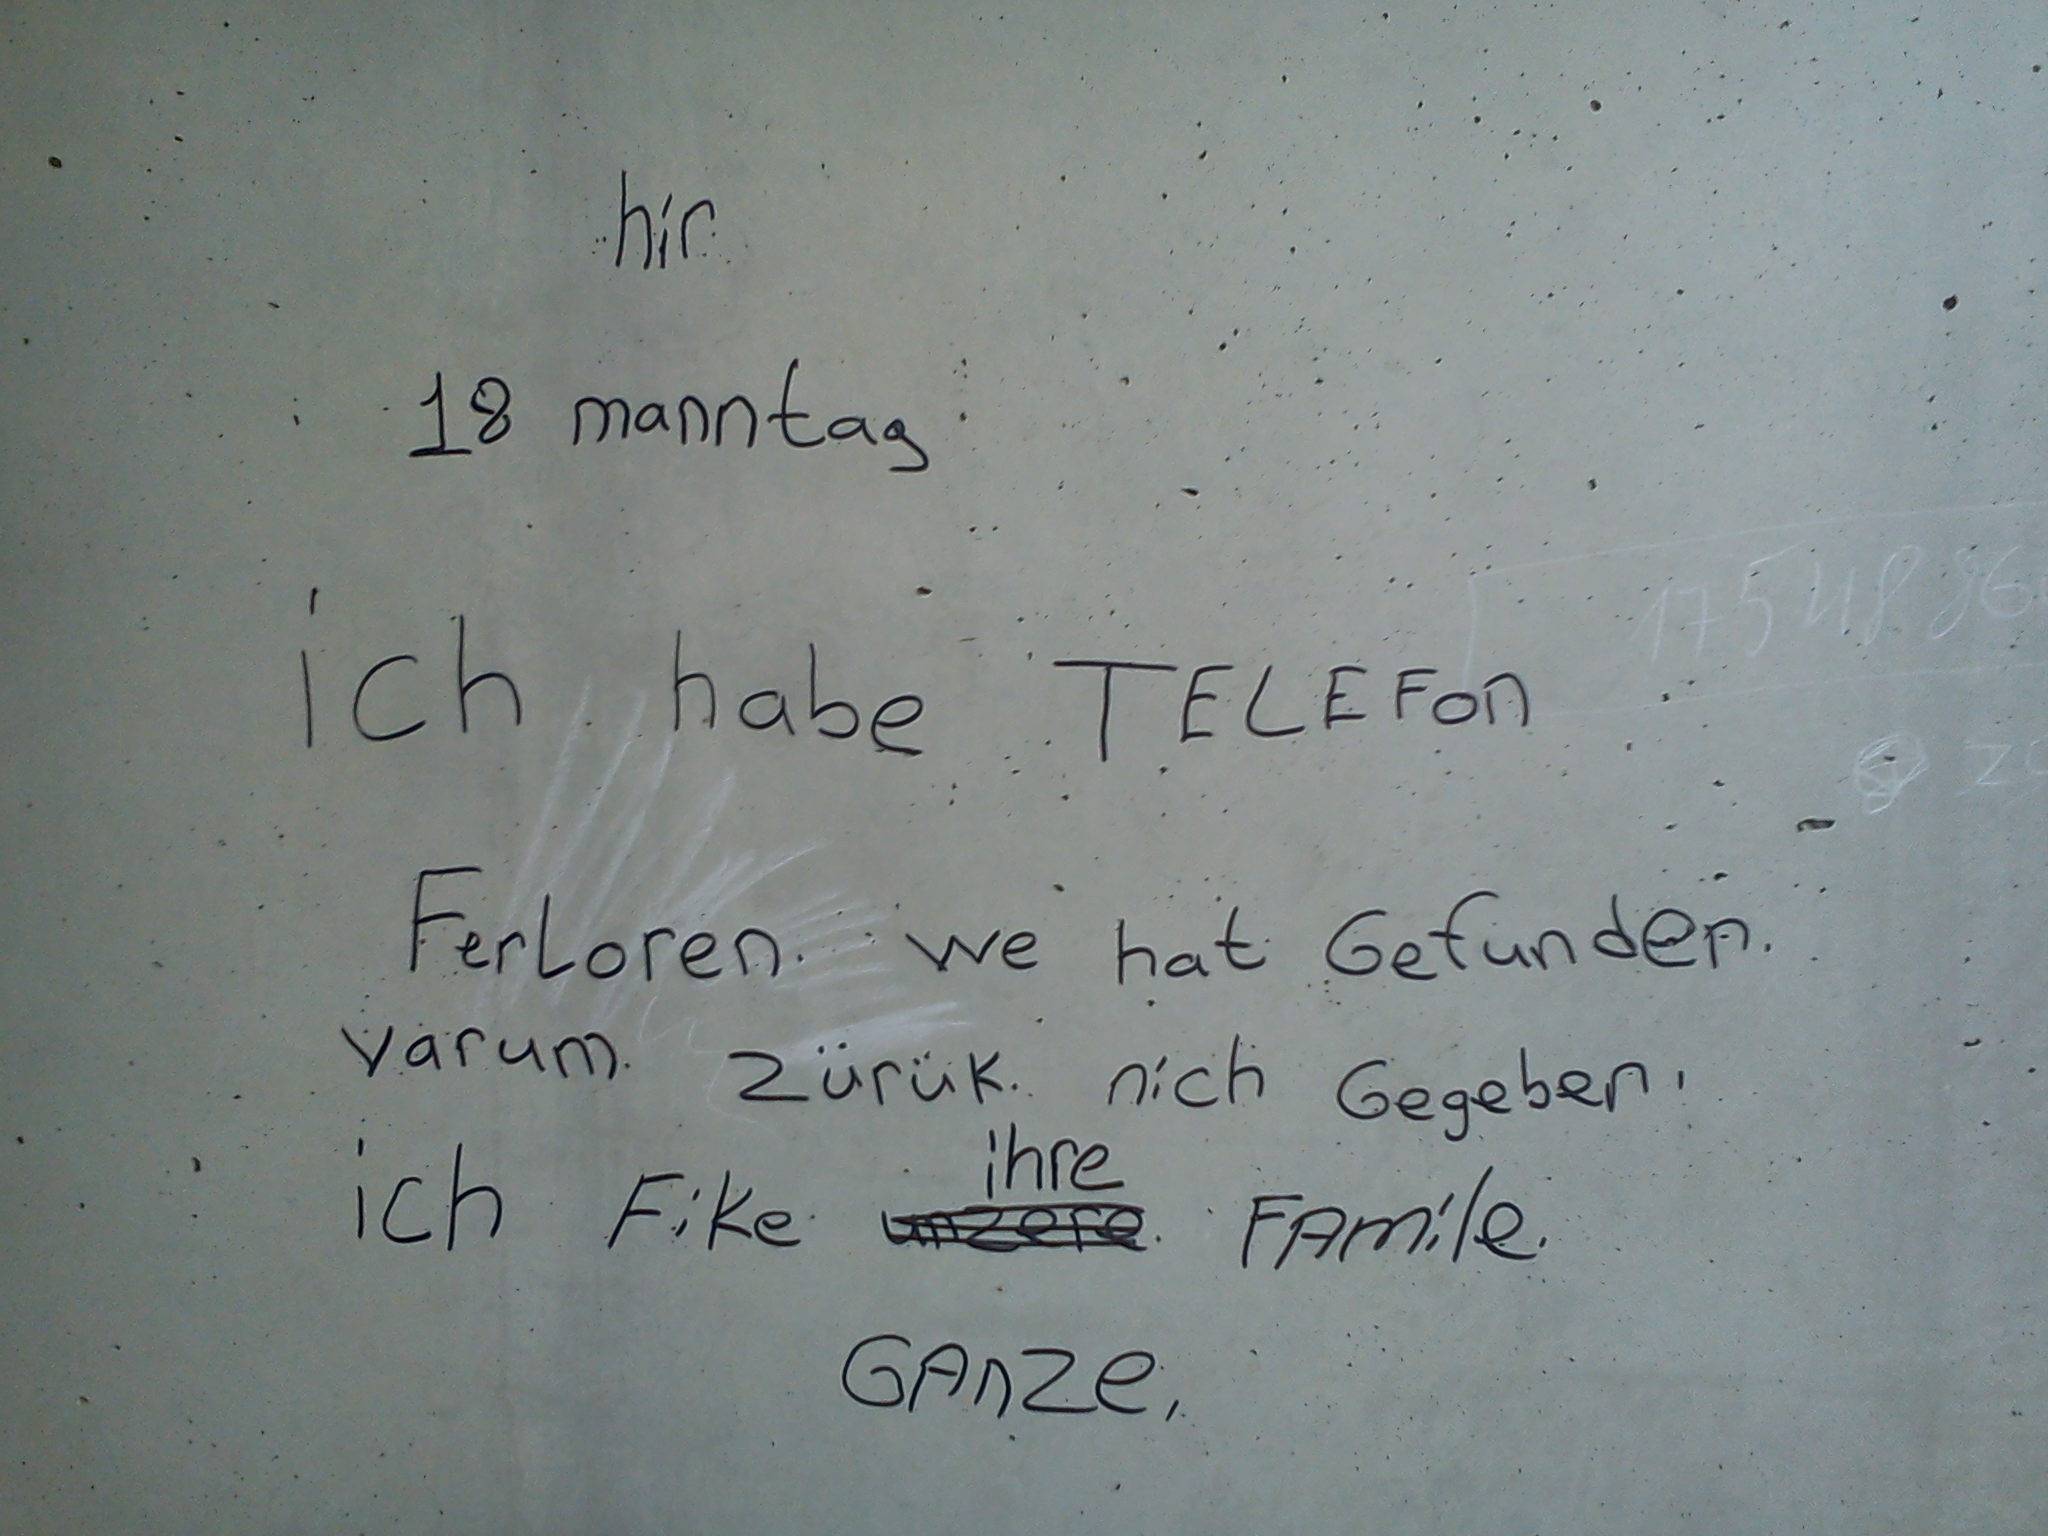 hir
18 manntag
ich habe TELEFon
FerLoren. we hat Gefunden.
varum. zürük. nich Gegeben.
ihre
ich Fike unzere. FAmile.
GAnze.
1754896